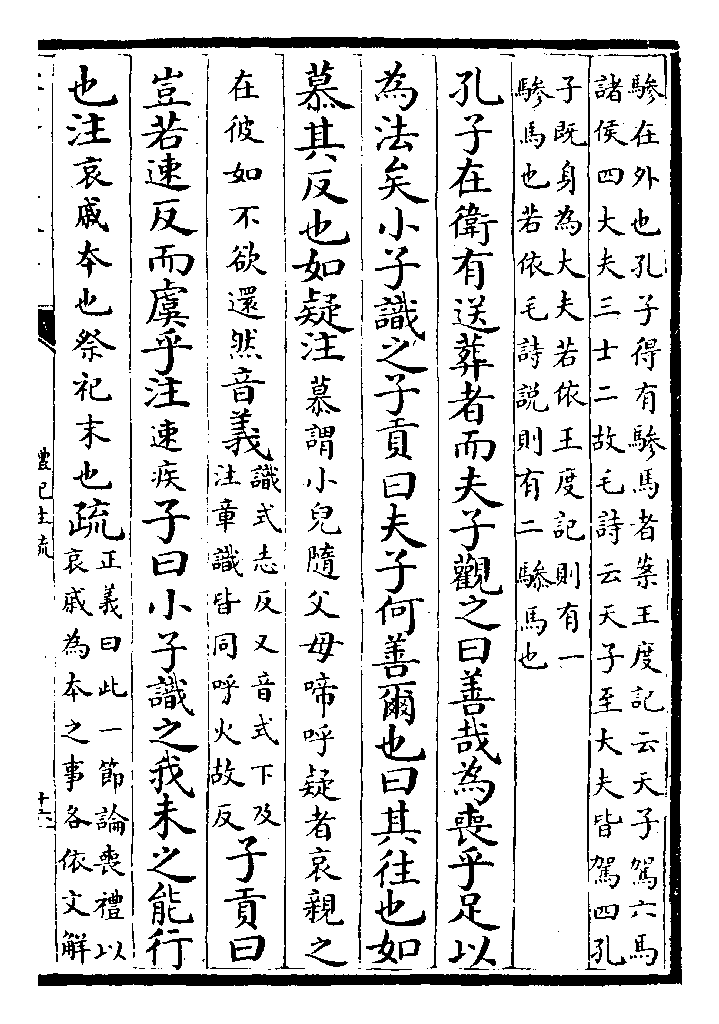 驂在外也孔子得有驂馬者案王度記云天子駕六馬
諸侯四大夫三士二故毛詩云天子至大夫皆駕四孔
子既身為大夫若依王度記則有一
驂馬也若依毛詩說則有二驂馬也
孔子在衛有送葬者而夫子觀之曰善哉為喪乎足以
為法矣小子識之子貢曰夫子何善爾也曰其往也如
慕其反也如疑注慕謂小兒隨父母啼呼疑者哀親之
在彼如不欲還然音義
識式志反又音式下及
注章識皆同呼火故反
子貢曰
豈若速反而虞乎注速疾子曰小子識之我未之能行
也注哀戚本也祭祀末也疏
正義曰此一節論喪禮以
哀戚為本之事各依文解
禮記注疏
十六